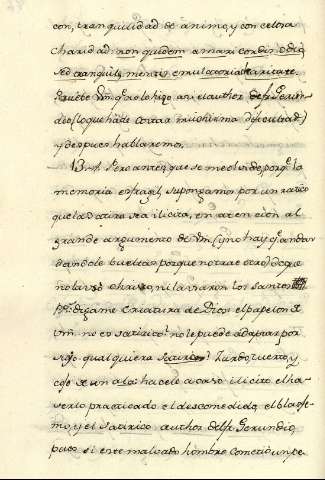 con, tranquilidad de animo, y con celosa
charidad: non quidem amari cordis odio
sed tranquila mentis emulatoria charitate.
Pruebe Vm. q.e no lo hizo asi el author de fr. Gerun
dio (lo que ha de costar muchissima dificultad)
y despues hablaremos.
13. Pero antes, que se me olvide, porq.e la
memoria es fragil, supongamos por un ratico
que la Satira sea ilicita, en atencion al
grande argumento de Vm. (y no hay q.e andar
dandole bueltas, porque no trae otro) de que
no la usó Christo, ni la usaron los Santos
digame criatura de Dios el papelon de
Vm. no es satirico? no le puede adaptar por
suio qualquiera satirico? Zurdo, tuerto, y
cojo se un ala: hacelo acaso ilicito el ha-
verlo practicado el descomedido, el blasfe-
mo, y el satirico author de fr. Gerundio,
pues si este malvado hombre cometió un pe